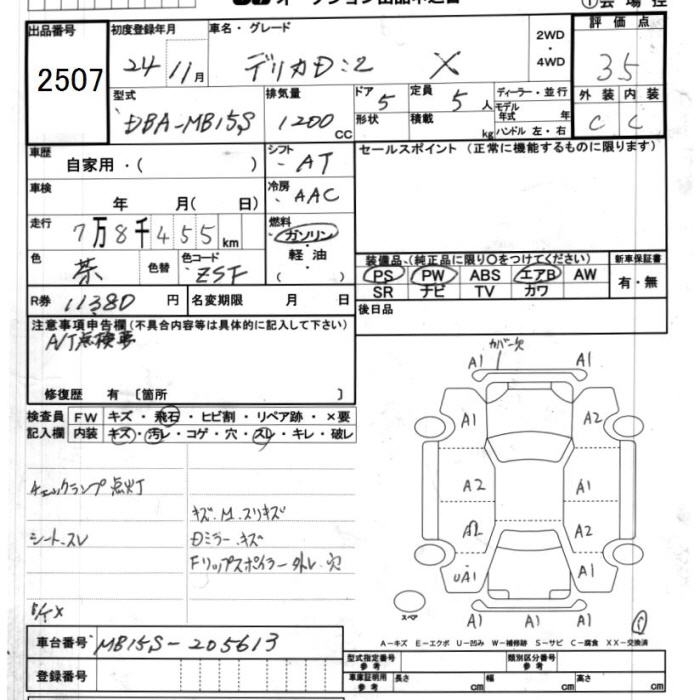 オークション出品申込書
①会場控
出品番号 初度登録年月 車名・グレード 2WD・4WD 評価点
2507 24 11月 デリカD:2 X 3.5
型式 排気量 ドア 定員 ディーラー・並行 外装 内装
DBA-MB15S 1200CC 5 5人 モデル年式 年 C C
形状 積載 kg ハンドル 左・右
車歴 自家用・( ) シフト AT セールスポイント (正常に機能するものに限ります)
車検 年 月( 日) 冷房 AAC
走行 7万8千455km 燃料 ガソリン・軽油・( )
色 茶 色替 色コード ZSF
装備品 (純正品に限り○をつけてください) 新車保証書
PS PW ABS エアB AW 有・無
SR ナビ TV カワ
R券 11380円 名変期限 月 日 後日品
注意事項申告欄(不具合内容等は具体的に記入して下さい)
A/T点検要
修復歴 有〔箇所 〕
検査員 FW キズ・飛石・ヒビ割・リペア跡・×要
記入欄 内装 キズ・汚レ・コゲ・穴・スレ・キレ・破レ
チェックランプ点灯
キズ.M.スリキズ
シート.スレ Dミラー.キズ
Fリップスポイラー外レ.穴
カバー欠
A1 A1
A1 A2
A2 A1
A2 A2
UA1 A1
A1 A1 A1
スペア
A-キズ E-エクボ U-凹み W-補修跡 S-サビ C-腐食 XX-交換済
車台番号 MB15S-205613
登録番号
型式指定番号 参考 類別区分番号 参考
車庫証明用 参考 長さ cm 幅 cm 高さ cm